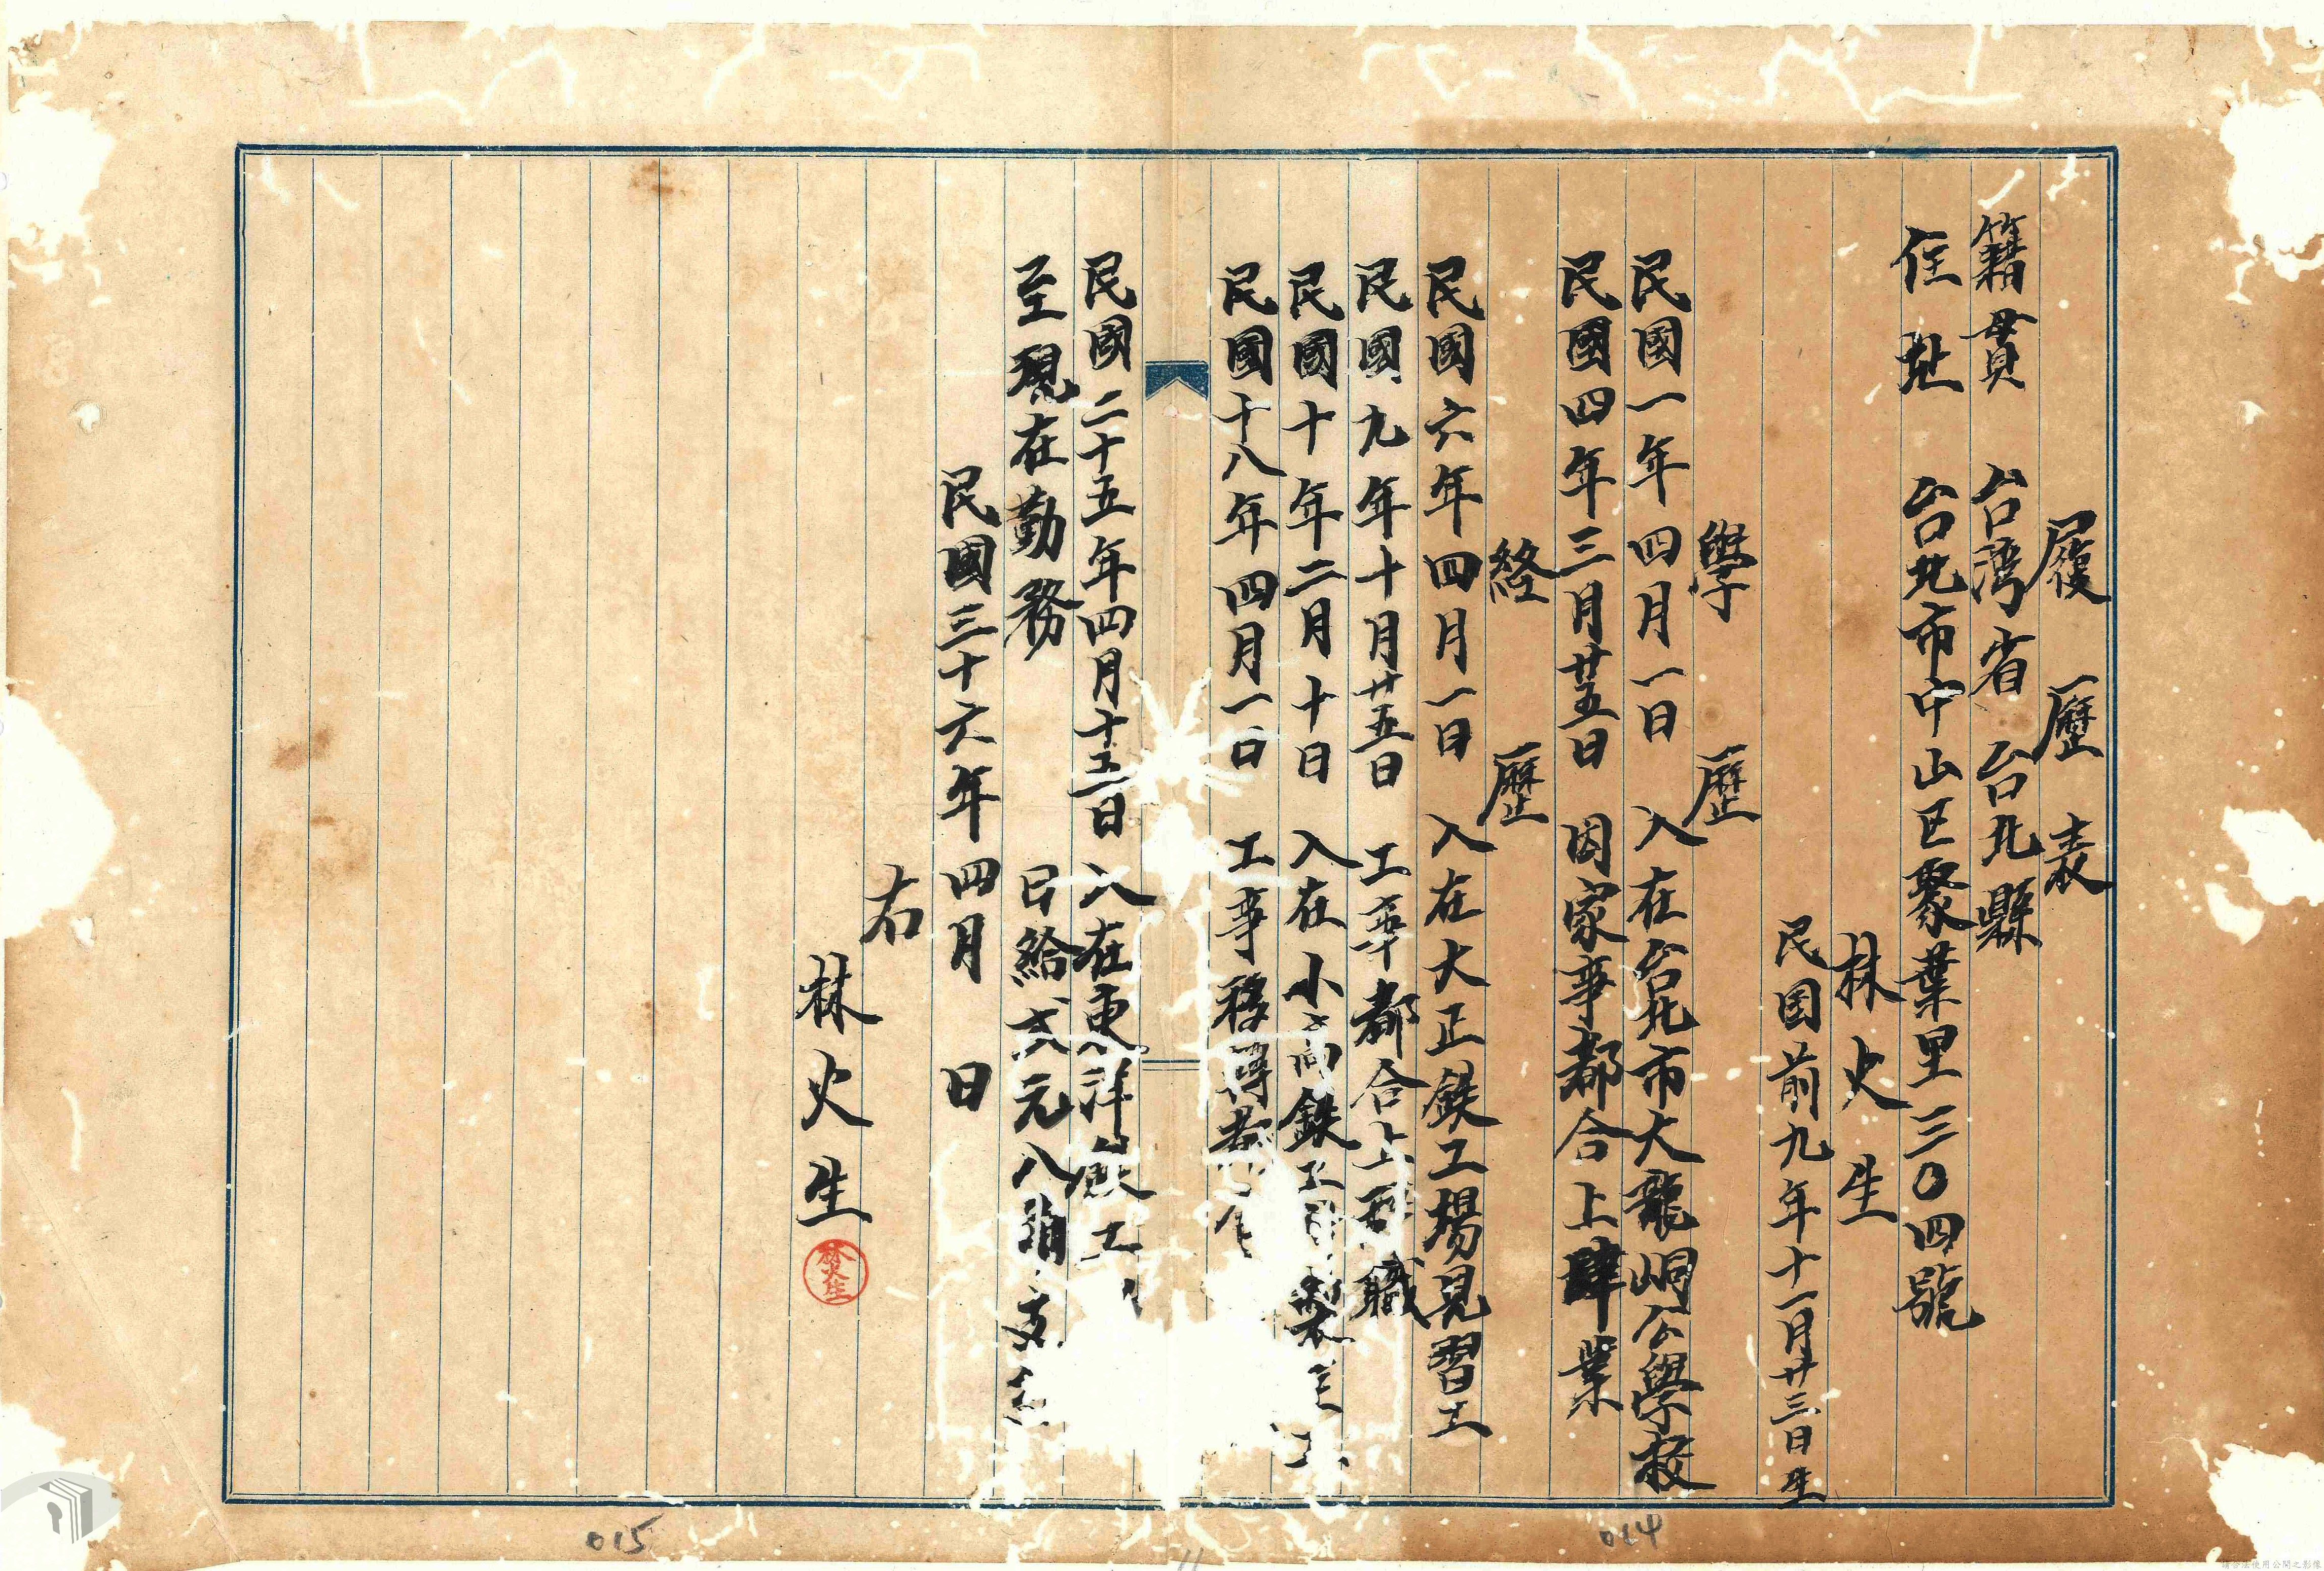 履歷表
籍貫 台湾省 台北縣
住址 台北市中山区聚葉里三〇四號
林火生
民国前九年十一月廿三日生
學歷
民國一年四月一日 入在台北市大龍峒公學校
民國四年三月廿五日 因家事都合上肄業
経歷
民國六年四月一日 入在大正鉄工場見習工
民國九年十月廿五日 工事都合上辞職
民國十年二月十日 入在小高鉄工所製
民國十八年四月一日 工事移轉
民國二十五年四月十三日 入在東洋鉄工
至現在勤務 日給弍元八 支
民國三十六年四月 日
右
林火生
林火生
015
014
11
請合法使用公開之影像